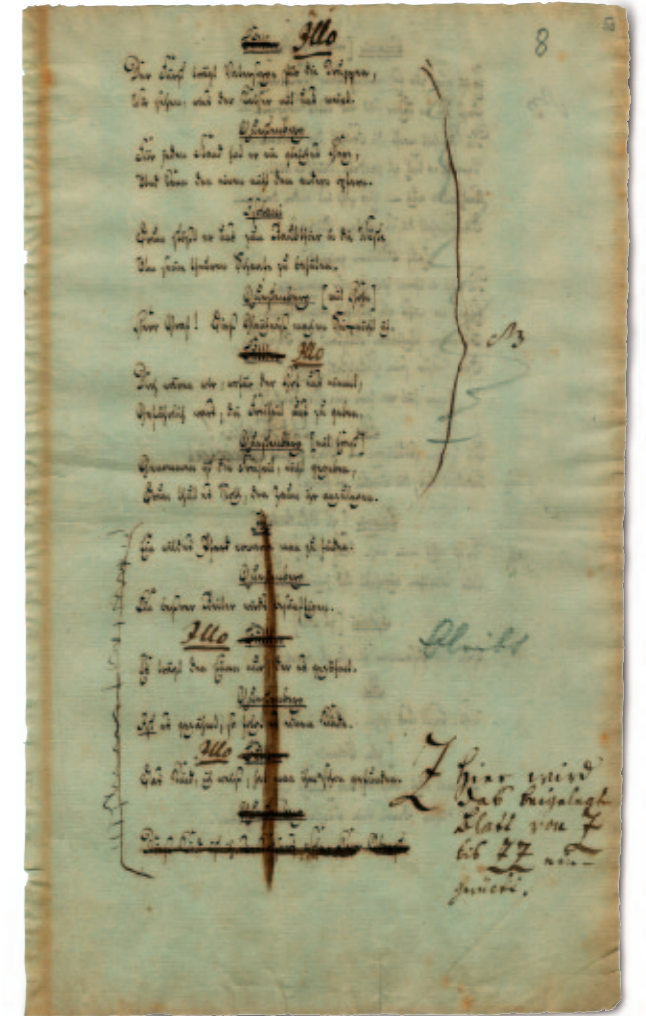 8
Illo
Der Fürst trägt Vatersorge für die Truppen,
Wir sehen, wies der Kaiser mit uns meint.
Questenberg
Für jeden Stand hat er ein gleiches Herz,
Und kann den einen nicht dem andern opfern.
Isolani
Drum stößt er uns zum Raubthier in die Wüste
Um seine theuren Schaafe zu behüten.
Questenberg [mit Hohn]
Herr Graf! Dieß Gleichniß machen Sie nicht ich.
Illo
Doch wären wir, wofür der Hof uns nimmt,
Gefährlich wars, die Freiheit uns zu geben.
Questenberg [mit Ernst]
Genommen ist die Freiheit, nicht gegeben,
Drum thut es Noth, den Zaum ihr anzulegen.
Ein wildes Pferd erwarte man zu finden.
Questenberg
Ein beßrer Reiter wirds besänftigen.
Illo
Es trägt den Einen nur, der es gezähmt.
Questenberg
Ist es gezähmt, so folgt es einem Kinde.
Illo
Das Kind, ich weiß, hat man ihm schon gefunden.
Questenberg
bleibt
Hier wird
das beigelegte
Blatt von Z
bis ZZ ein-
gerückt.